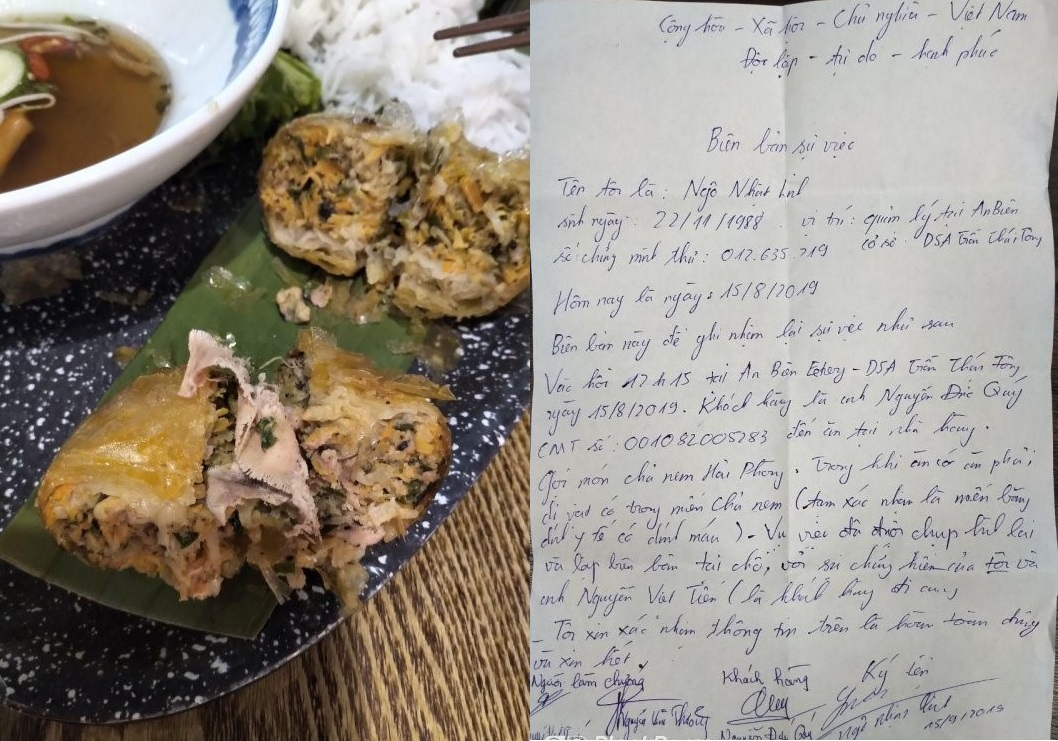 Cộng hòa - Xã hội - Chủ nghĩa - Việt Nam
Độc lập - tự do - hạnh phúc
Biên bản sự việc
Tên tôi là: Ngô Nhật Linh
sinh ngày: 22/11/1988. vị trí: quản lý tại An Biên
số chứng minh thư: 012.635.719 cơ sở: D5A Trần Thái Tông
Hôm nay là ngày: 15/8/2019
Biên bản này để ghi nhận lại sự việc như sau
Vào hồi 12h15 tại An Biên Eatery - D5A Trần Thái Tông,
ngày 15/8/2019. Khách hàng là anh Nguyễn Đức Quý
CMT số: 001082005283 đến ăn tại nhà hàng.
Gọi món chả nem Hải Phòng. Trong khi ăn có ăn phải
dị vật có trong miếng chả nem (tạm xác nhận là miếng băng
dính y tế có dính máu). Vụ việc đã được chụp hình lại
và lập biên bản tại chỗ, với sự chứng kiến của tôi và
anh Nguyễn Việt Tiến (là khách hàng đi cùng
- Tôi xin xác nhận thông tin trên là hoàn toàn đúng
và xin hết
Người làm chứng Khách hàng Ký tên
Quý
Nguyễn Đức Quý Ngô Nhật Linh
15/8/2019